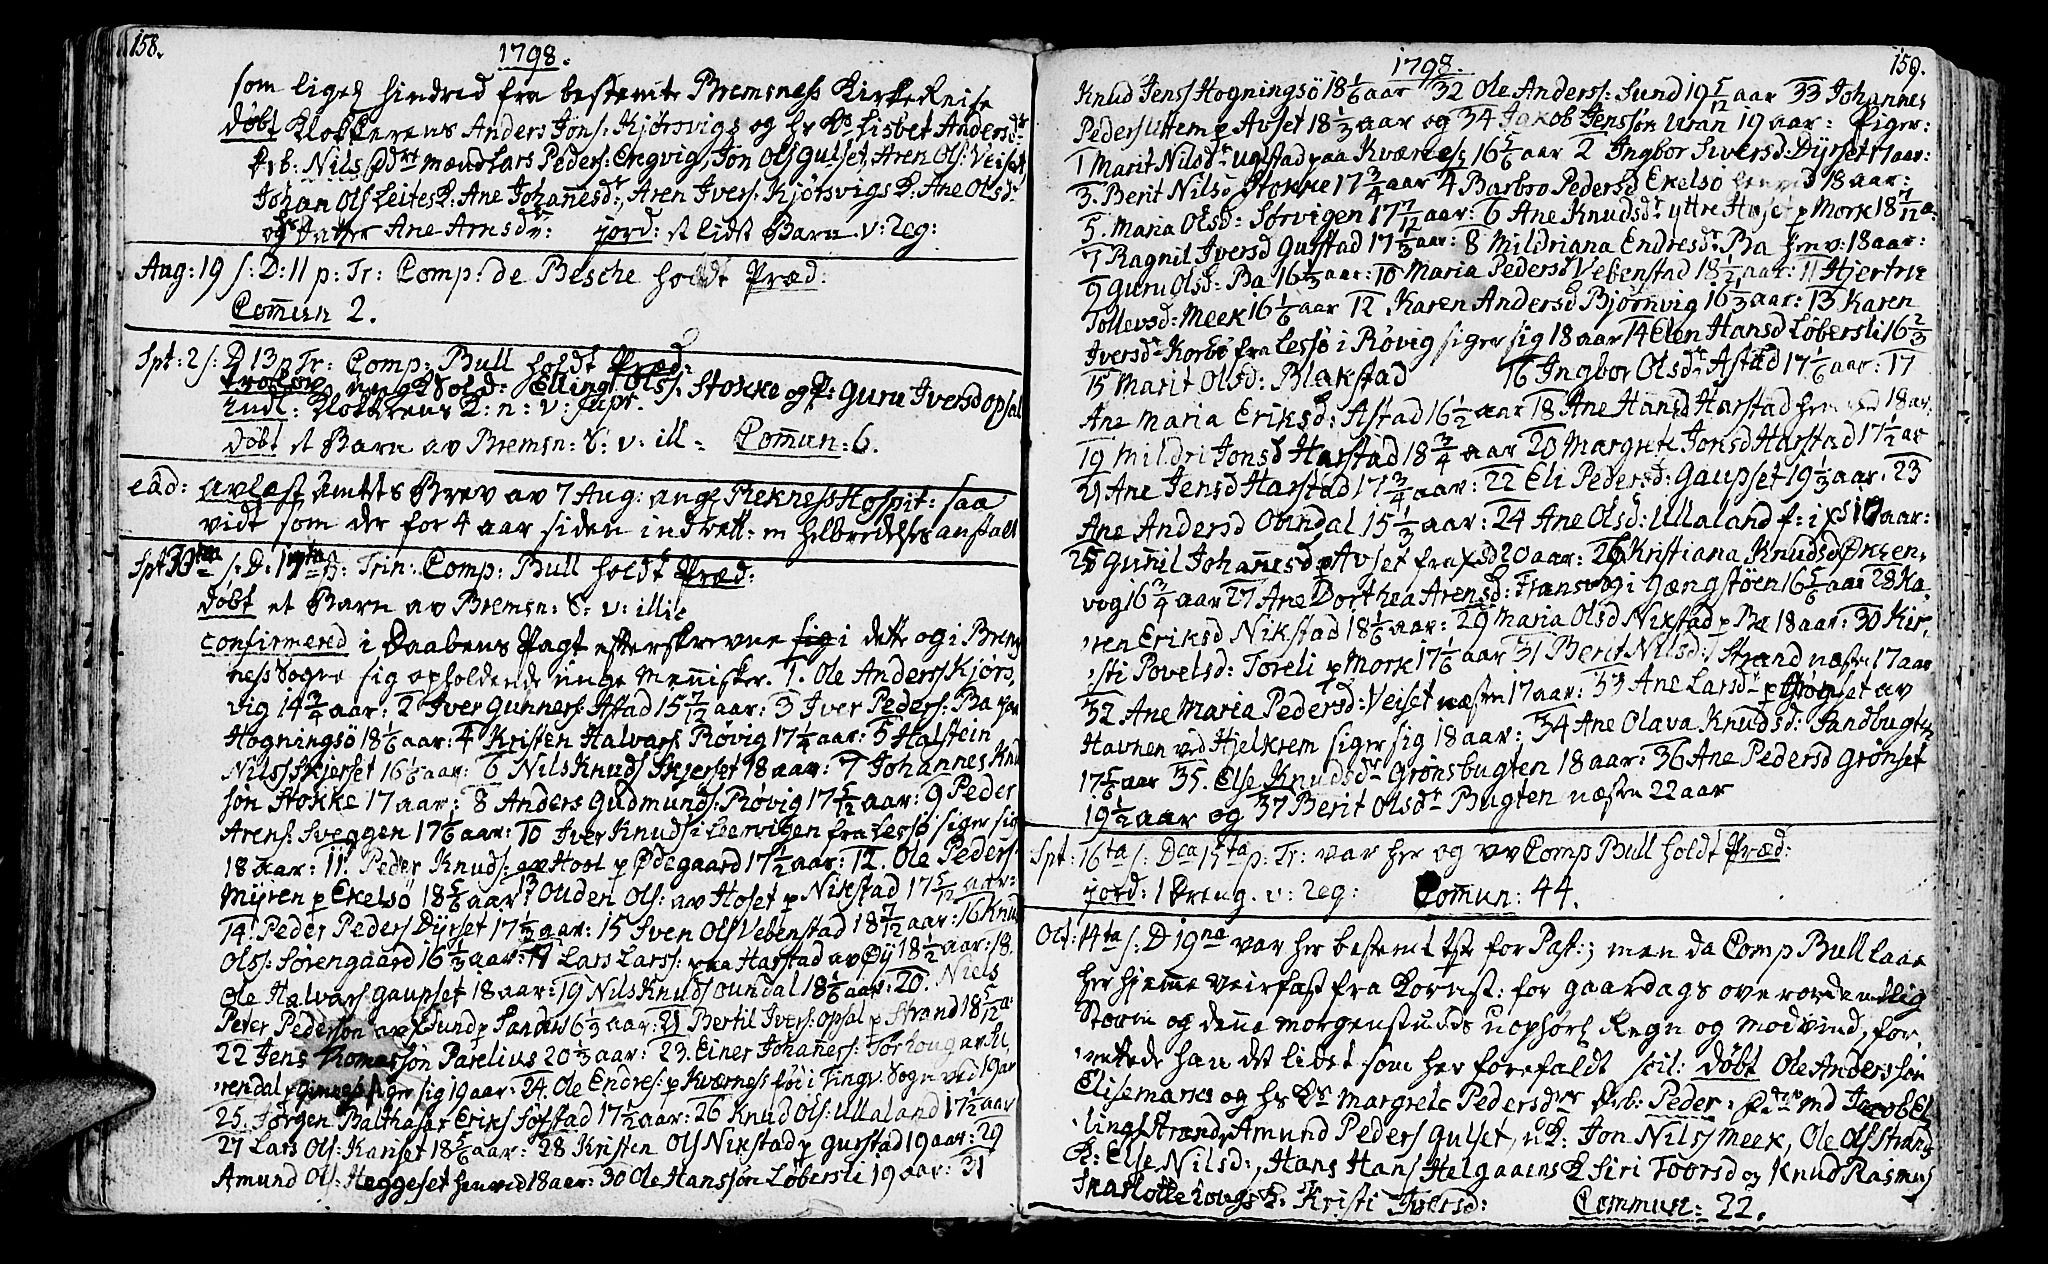 158.
1798.
som liges hindred fra bestemte Bremsness KirkeReise
døbt Klokkerens Anders Jöns: Kjørsvigs og hs Ks Lisbet Andersdr
Drb: Nils Fdre mænd Lars Peders: Ergvig, Jon Ols Gulset, Aren Ols: Veiset
Johan Ols Leites K: Ane Johanesd:, Aren Ivers: Kjörsvigs K: Ane Olsdr
og Datter Ane Arnsdr: jord: et lidet Barn v: Reg:
Aug: 19 S: D: 11 p: Tr: Comp: de Besche holdt Præd:
Comun 2.
Spt: 2 S: D 13 p Tr: Comp: Bull holdt Præd:
trolov. ungk Sold: Elling Ols: Stokke og P: Guru Iversd Opsal
Indl: Klokkerens K: n: v: supr.
døbt et Barn av Bremsn: S: v: ill = Comun: 6.
ead: avlæst Amtets Brev av 7 Aug: ang Rekness Hospit: saa
vidt som der for 4 aar siden indrett: en helbredelses anstalt
Spt 30ta S: D: 17ma p: Trin: Comp: Bull holdt Præd:
døbt et Barn av Bremsn: S: v: illic
confirmered i Daabens Pagt efterskrevne i dette og i Brems
ness Sogne sig opholdende unge Mennisker. 1. Ole Anders Kjørs,
vig 14 3/4 aar: 2 Iver Gunners: Astad 15 7/12 aar: 3 Iver Peders: Ba
Hogningsö 18 1/6 aar: 4 Kristen Halvars: Røvig 17 1/4 aar: 5 Halstein
Nilss Skjerset 16 1/6 aar: 6 Nils Knuds Skjerset 18 aar: 7 Johannes Knud
søn Stokke 17 aar: 8 Anders Gudmunds: Røvig 17 5/12 aar: 9 Peder
Arens: Sveggen 17 1/6 aar: 10 Iver Knuds i Leervigen fra Lessö siger sig
18 aar: 11. Peder Knuds: av Hool p Ødegaard 17 1/2 aar: 12. Ole Peders:
Myren p Ekelsö 18 5/6 aar 13 Ouden Ols: av Hoset p Nikstad 17 5/12 aar:
14. Peder Peders Dÿrset 17 1/2 aar: 15 Sven Ols Vebenstad 18 7/12 aar: 16 Knud
Olss: Sörengaard 16 1/3 aar: 17 Lars Larss: Harstad av Øÿ 18 1/2 aar: 18.
Ole Halvars Gaupset 18 aar: 19 Nils Knuds Oundal 18 1/6 aar: 20. Niels
Peter Pederson av Sund p Sandes 16 1/3 aar: 21 Bertil Ivers: Opsal p Strand 18 5/12 a:
22 Jens Tomassön Parelius 20 1/3 aar: 23. Einer Johaners:
rendal siger sig 19 aar: 24. Ole Endres: p Kværness föd i Tingv: Sogn ved 19 ar
25. Jørgen Balthasar Eriks Sofstad 17 1/2 aar: 26 Knud Ols: Ullaland 17 1/2 aar
27 Lars Ols: Kanset 18 5/6 aar: 28 Kristen Ols Nikstad p Gurstad 19 aar: 29
Amund Ols: Heggeset henved 18 aar: 30 Ole Hanssøn Løbersli 19 aar: 31
159.
1798.
Knud Jens Hogningsö 18 1/6 aar 32 Ole Anders: Sund 19 5/12 aar 33 Johannes
Peders Utem p Avset 18 1/3 aar og 34 Jakob Jenssön Uran 19 aar: Piger:
1 Marit Nilsdr Uglstad paa Kværnes; 16 5/6 aar 2 Ingbor Siversd: Dÿrset 17 aar:
3. Berit Nilsd Stokke 17 3/4 aar 4 Barbro Pedersd Ekelsö henved 18 aar:
5. Maria Olsd: Sørvigen 17 7/12 aar: 6 Ane Knudsdr ÿttre Huset p Mork 18 7/12 a:
7 Ragnil Iversd Gurstad 17 1/3 aar: 8 Mildriana Endresdr Ba henv: 18 aar:
9 Guru Olsd: Ba 16 1/3 aar: 10 Maria Pedersd Vebenstad 18 1/2 aar: 11 Hjertrue
Tollevsd: Meek 16 1/6 aar 12. Karen Andersd Bjørnvig 16 1/3 aar: 13 Karen
Iversdr Korbø fra Lessö i Røvig siger sig 18 aar 14 Elen Hansd Løbersli 16 2/3
15 Marit Olsd: Blakstad 16 Ingbor Olsdr Astad 17 1/6 aar: 17
Ane Maria Eriksd: Astad 16 1/2 aar 18 Ane Hansd Harstad henved 18 ar
19 Mildri Jonsd Harstad 18 3/4 aar 20 Margrete Jonsd Harstad 17 1/2 aar
21 Ane Jensd Harstad 17 3/4 aar: 22 Eli Pedersd: Gaupset 19 1/3 aar: 23
Ane Andersd Oundal 15 1/3 aar: 24 Ane Olsd: Ullaland f: i 19 aar:
25 Gunil Johannesd p Avset fra 20 aar: 26 Kristiana Knudsd Øksen,
vog 16 3/4 aar 27 Ane Dorthea Arensd: Fransvog i Gængstöen 16 5/6 aar 28 Ka,
ren Eriksd Nikstad 18 1/6 aar: 29 Maria Olsd Nikstad p Ba 18 aar: 30 Kir,
sti Povelsd: Toreli p Mork 17 1/6 aar 31 Berit Nilsd: Strand næsten 17 aar
32 Ane Maria Pedersd: Veiset næsten 17 aar: 33 Ane Larsdr p Grönset av
Havnen ved Hjelkrem siger sig 18 aar: 34 Ane Olava Knudsd: Sandbugten
17 5/6 aar 35. Else Knudsdr Grønsbugten 18 aar: 36 Ane Pedersd Grönset
19 1/2 aar og 37 Berit Olsdr Bugten næsten 22 aar
Spt: 16ta S: Dca 15ta p: Tr: var her og av Comp Bull holdt Præd:
jord: 1 Dreng. v: Reg: Comun: 44.
Oct: 14ta S: D 19na var her bestemt tjste for Past:; men da Comp Bull laae
her hjemme veirfast fra Kornst: for gaardags overordentlig
Storm og denne morgenstunds uophörl Regn og Modvind, for,
rettede han det lidet som her forefaldt scil: døbt Ole Anderssön
Elisemarks og hs Ks Margrete Pedersdrs Drb: Peder: Fdre md Jacob El
lings Strand, Amund Peders Gulset, uK: Jon Nils Meek, Ole Ols Strands
K: Else Nilsd:, Hans Hans Helgaaens K Siri Toorsd og Knud Rasmus
K. Kristi Iversd: Commun: 22.